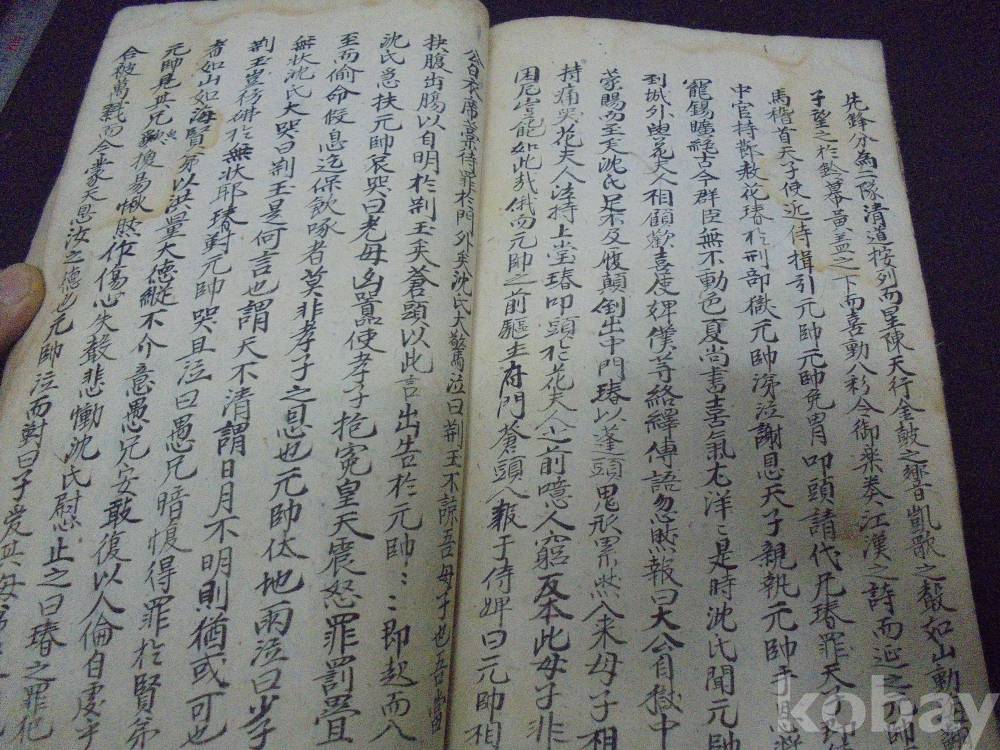 先鋒分爲二隊清道按列而星陳天行金鼓之響凱歌之聲如山動
子望之於幕黃盖之下而喜動八彩令御樂奏江漢之詩而延之元帥
馬稽首天子使近侍揖引元帥元帥免冑叩頭請代兄瑃罪天子
中官持敕赦花瑃於刑部獄元帥涕泣謝恩天子親執元帥手
寵錫曠絶古今群臣無不動色夏尚書喜氣尤洋〻是時沈氏聞元帥
到城外與花夫人相顧歡喜使婢僕等絡繹傳語忽然報曰大公自獄中
蒙賜而至矣沈氏足不及履顚倒出中門瑃以蓬頭鬼形累然入來母子相
持痛哭花夫人法持上堂瑃叩頭於花夫人之前噫人窮反本此母子非
困厄豈能如此哉俄而元帥之前驅至府門蒼頭入報于侍婢曰元帥相
公自衣席藁待罪於門外矣沈氏大驚泣曰荆玉不諒吾母子也吾當
抉腹出腸以自明於荆玉矣蒼頭以此言出告於元帥〻〻卽起而入
沈氏急扶元帥哀哭曰老母凶嚚使孝子抱寃皇天震怒罪罰疊
至而偷命假息迄保飮啄者莫非孝子之恩也元帥伏地雨泣曰少子
無狀沈氏大哭曰荆玉是何言也謂天不淸謂日月不明則猶或可也
荆玉豈於無狀耶瑃對元帥哭且泣曰愚兄暗愎得罪於賢弟
者如山如海賢弟以洪量大德縱不介意愚兄安敢復以人倫自處乎
元帥見其兄貌換易愀然作傷心失聲悲慟沈氏慰止之曰瑃之罪犯
合被萬戮而今蒙天恩汝之德也元帥泣而對曰子愛其母